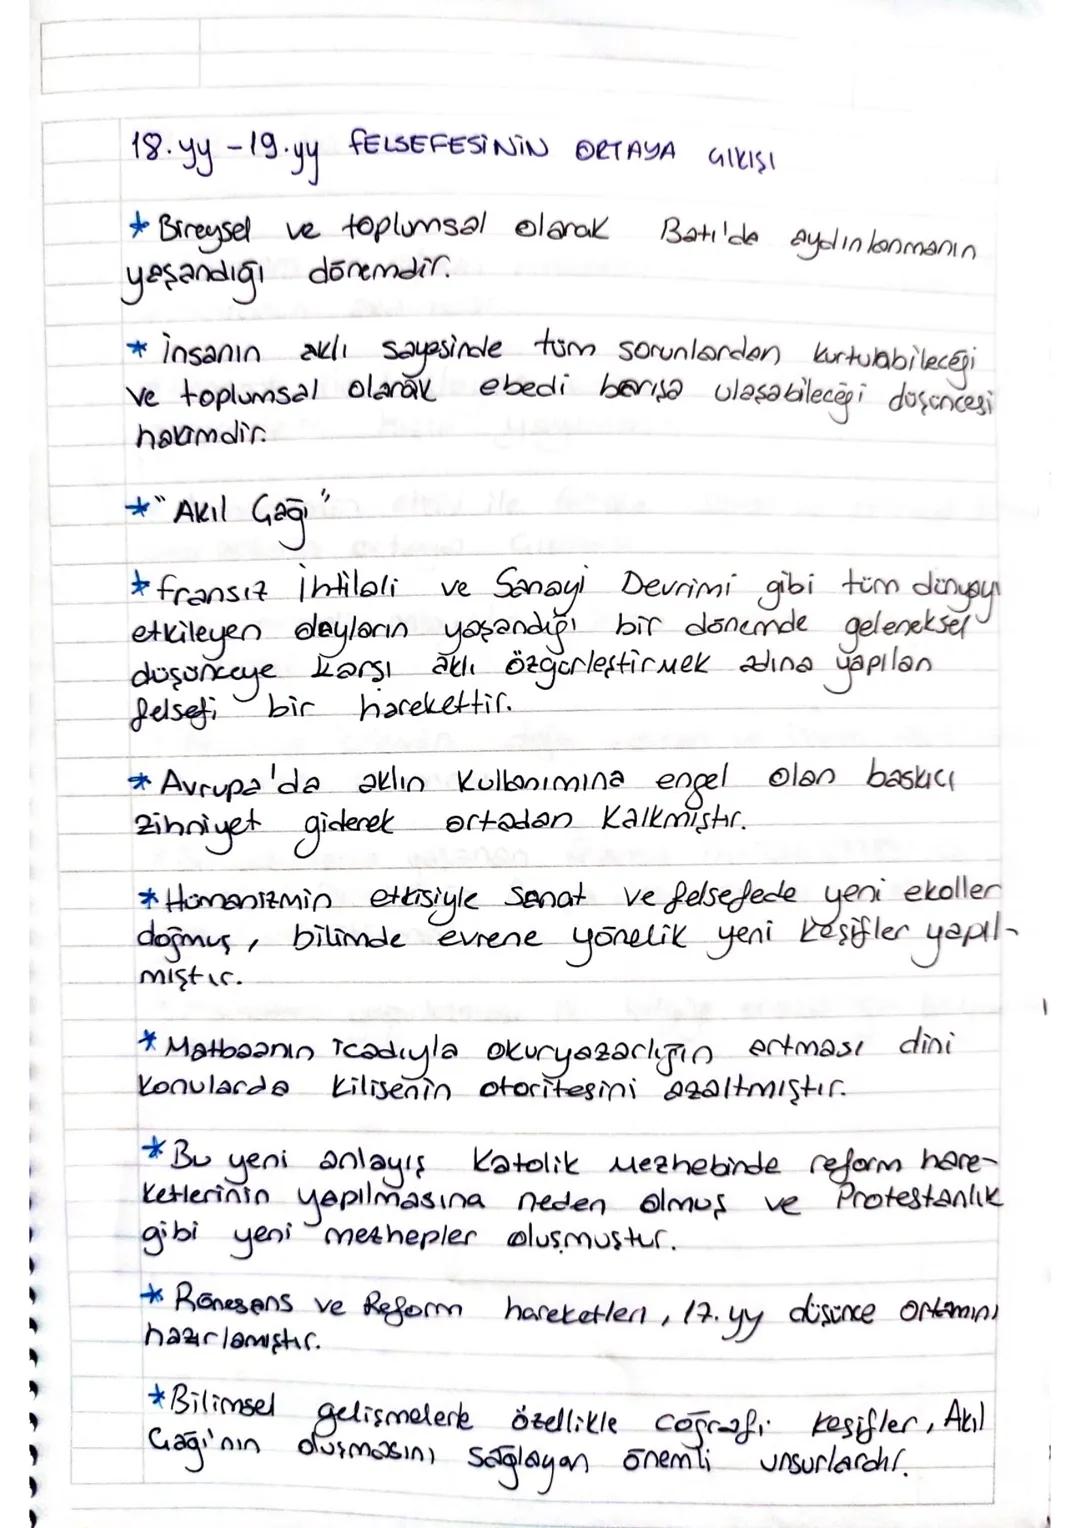 18.yy - 19.yy FELSEFESİNİN ORTAYA ÇIKIŞI
* Bireysel ve toplumsal olarak Batı'da aydınlanmanın
yaşandığı dönemdir.
* İnsanın aklı sayesinde tüm sorunlardan kurtulabileceği
ve toplumsal olarak ebedi barışa ulaşabileceği düşüncesi
hakimdir.
* "Akıl Çağı"
* Fransız İhtilali ve Sanayi Devrimi gibi tüm dünyayı
etkileyen olayların yaşandığı bir dönemde geleneksel
düşünceye karşı aklı özgürleştirmek adına yapılan
felsefi bir harekettir.
* Avrupa'da aklın kullanımına engel olan baskıcı
zihniyet giderek ortadan kalkmıştır.
* Hümanizmin etkisiyle sanat ve felsefede yeni ekoller
doğmuş, bilimde evrene yönelik yeni keşifler yapıl-
mıştır.
* Matbaanın icadıyla okuryazarlığın artması dini
konularda kilisenin otoritesini azaltmıştır.
* Bu yeni anlayış Katolik Mezhebinde reform hare-
ketlerinin yapılmasına neden olmuş ve Protestanlık
gibi yeni mezhepler oluşmuştur.
* Rönesans ve Reform hareketleri, 17.yy düşünce ortamını
hazırlamıştır.
* Bilimsel gelişmelerle özellikle coğrafi keşifler, Akıl
Çağı'nın oluşmasını sağlayan önemli unsurlardır.